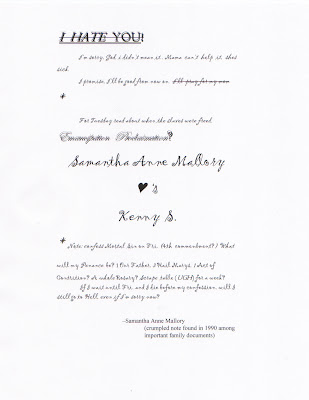 I HATE YOU!
I'm sorry, God, i didn't mean it. Mama can't help it, shes
sick.
I promise, I'll be good from now on. I'll pray for my mom
*
For Tuesday read about when the slaves were freed.
Emancipation Proclamation?
Samantha Anne Mallory
♥'s
Kenny S.
* Note: confess Mortal Sin on Fri. (4th commandment?) What
will my Penance be? 1 Our Father, 3 Hail Marys, 1 Act of
Contrition? A whole Rosary? Scrape table (UGH) for a week?
If I wait until Fri. and I die before my confession, will I
still go to Hell, even if I'm sorry now?
~Samantha Anne Mallory
(crumpled note found in 1990 among
important family documents)